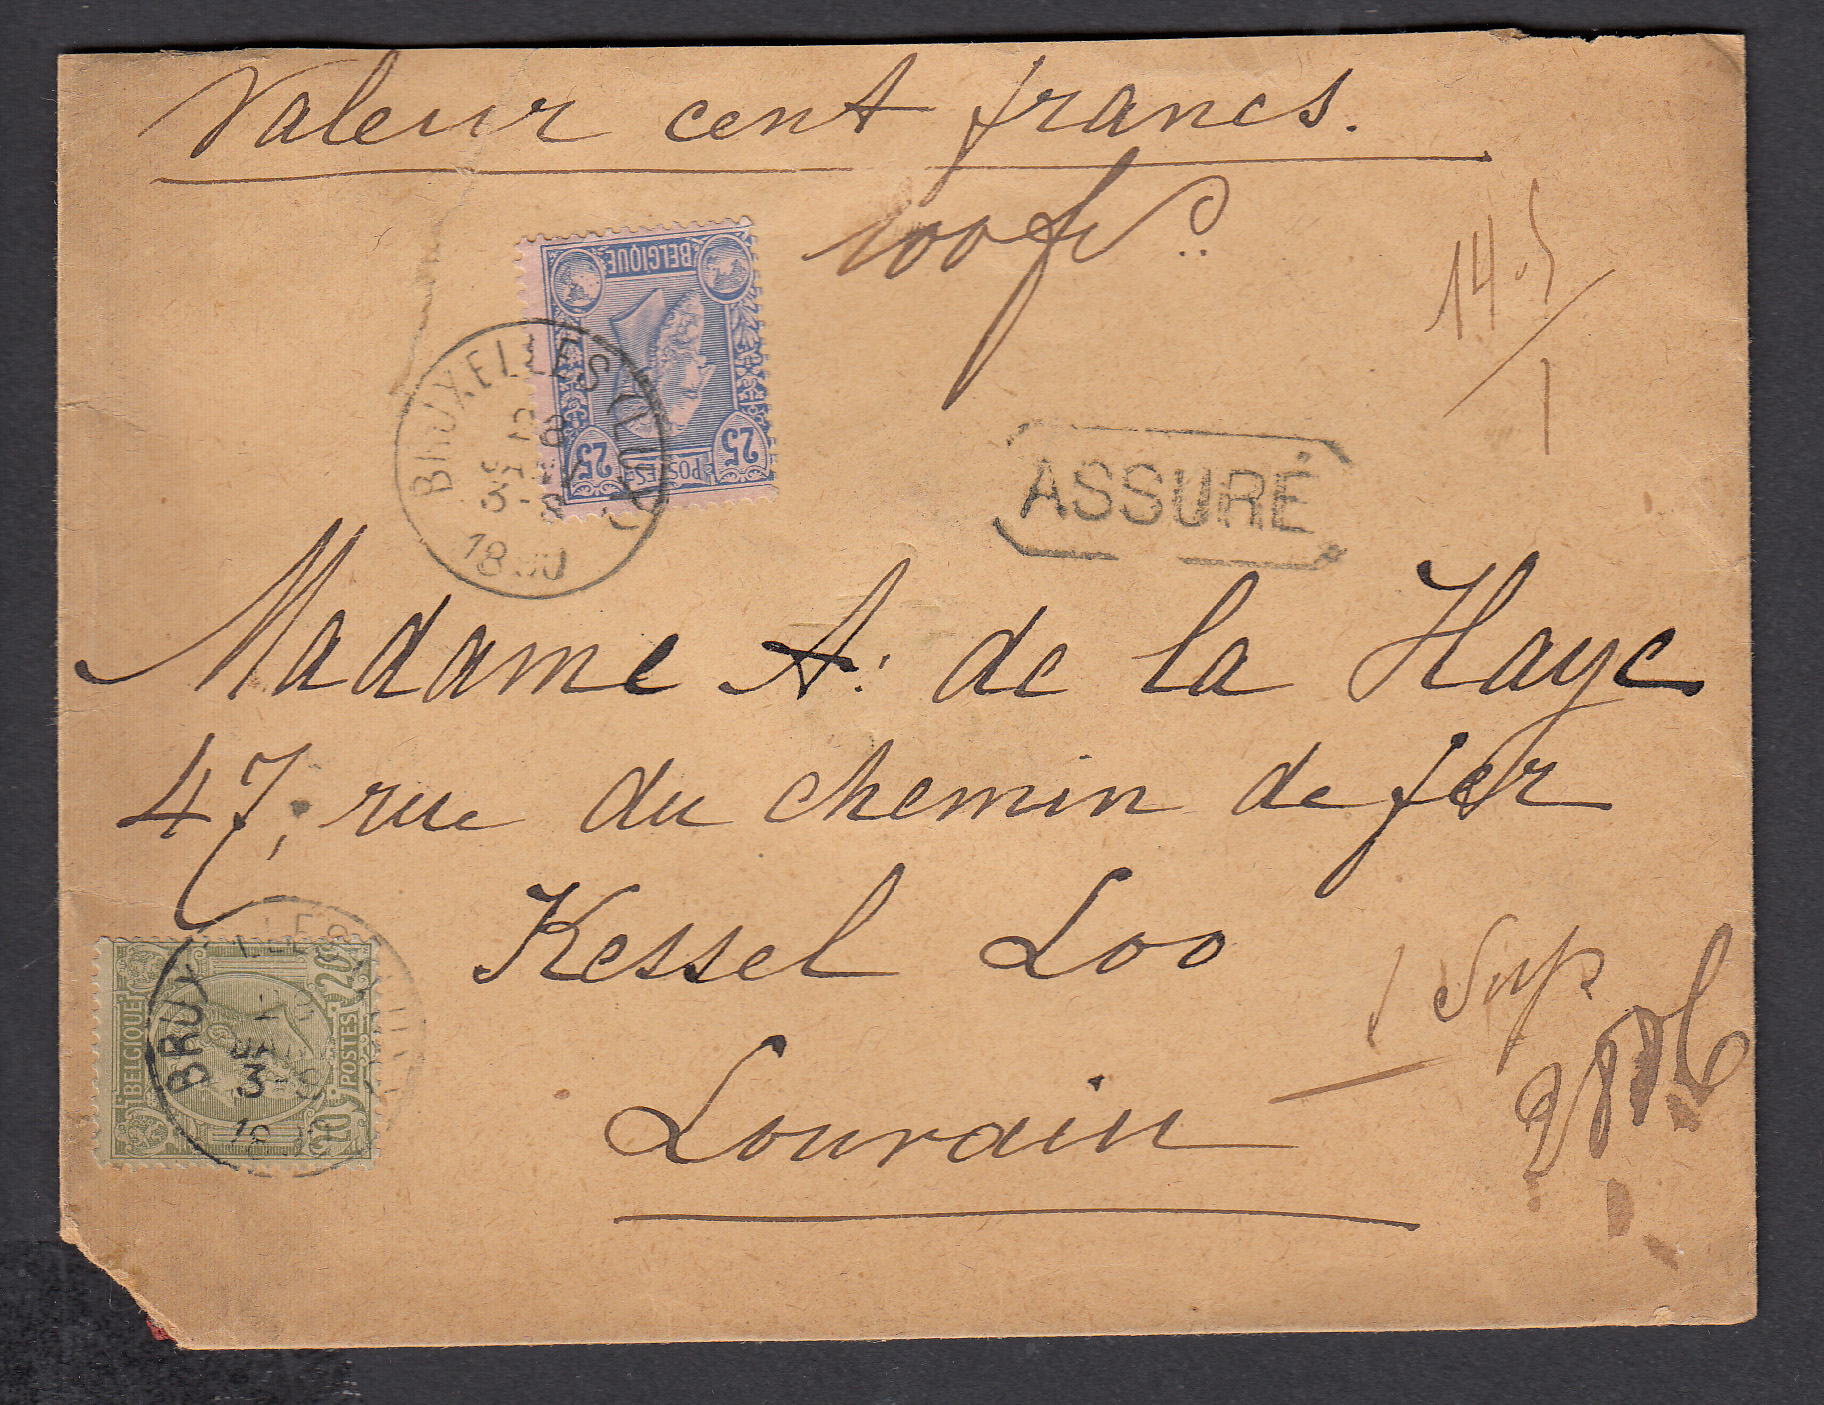 Valeur cent francs.
100 fr
14
BELGIQUE
25 POSTES 25
BRUXELLES
3-8
ASSURÉ
Madame A. de la Haye
47, rue du chemin de fer
Kessel Loo
Louvain
BELGIQUE
20 POSTES 20
BRUX LLES
3-
1 Sup